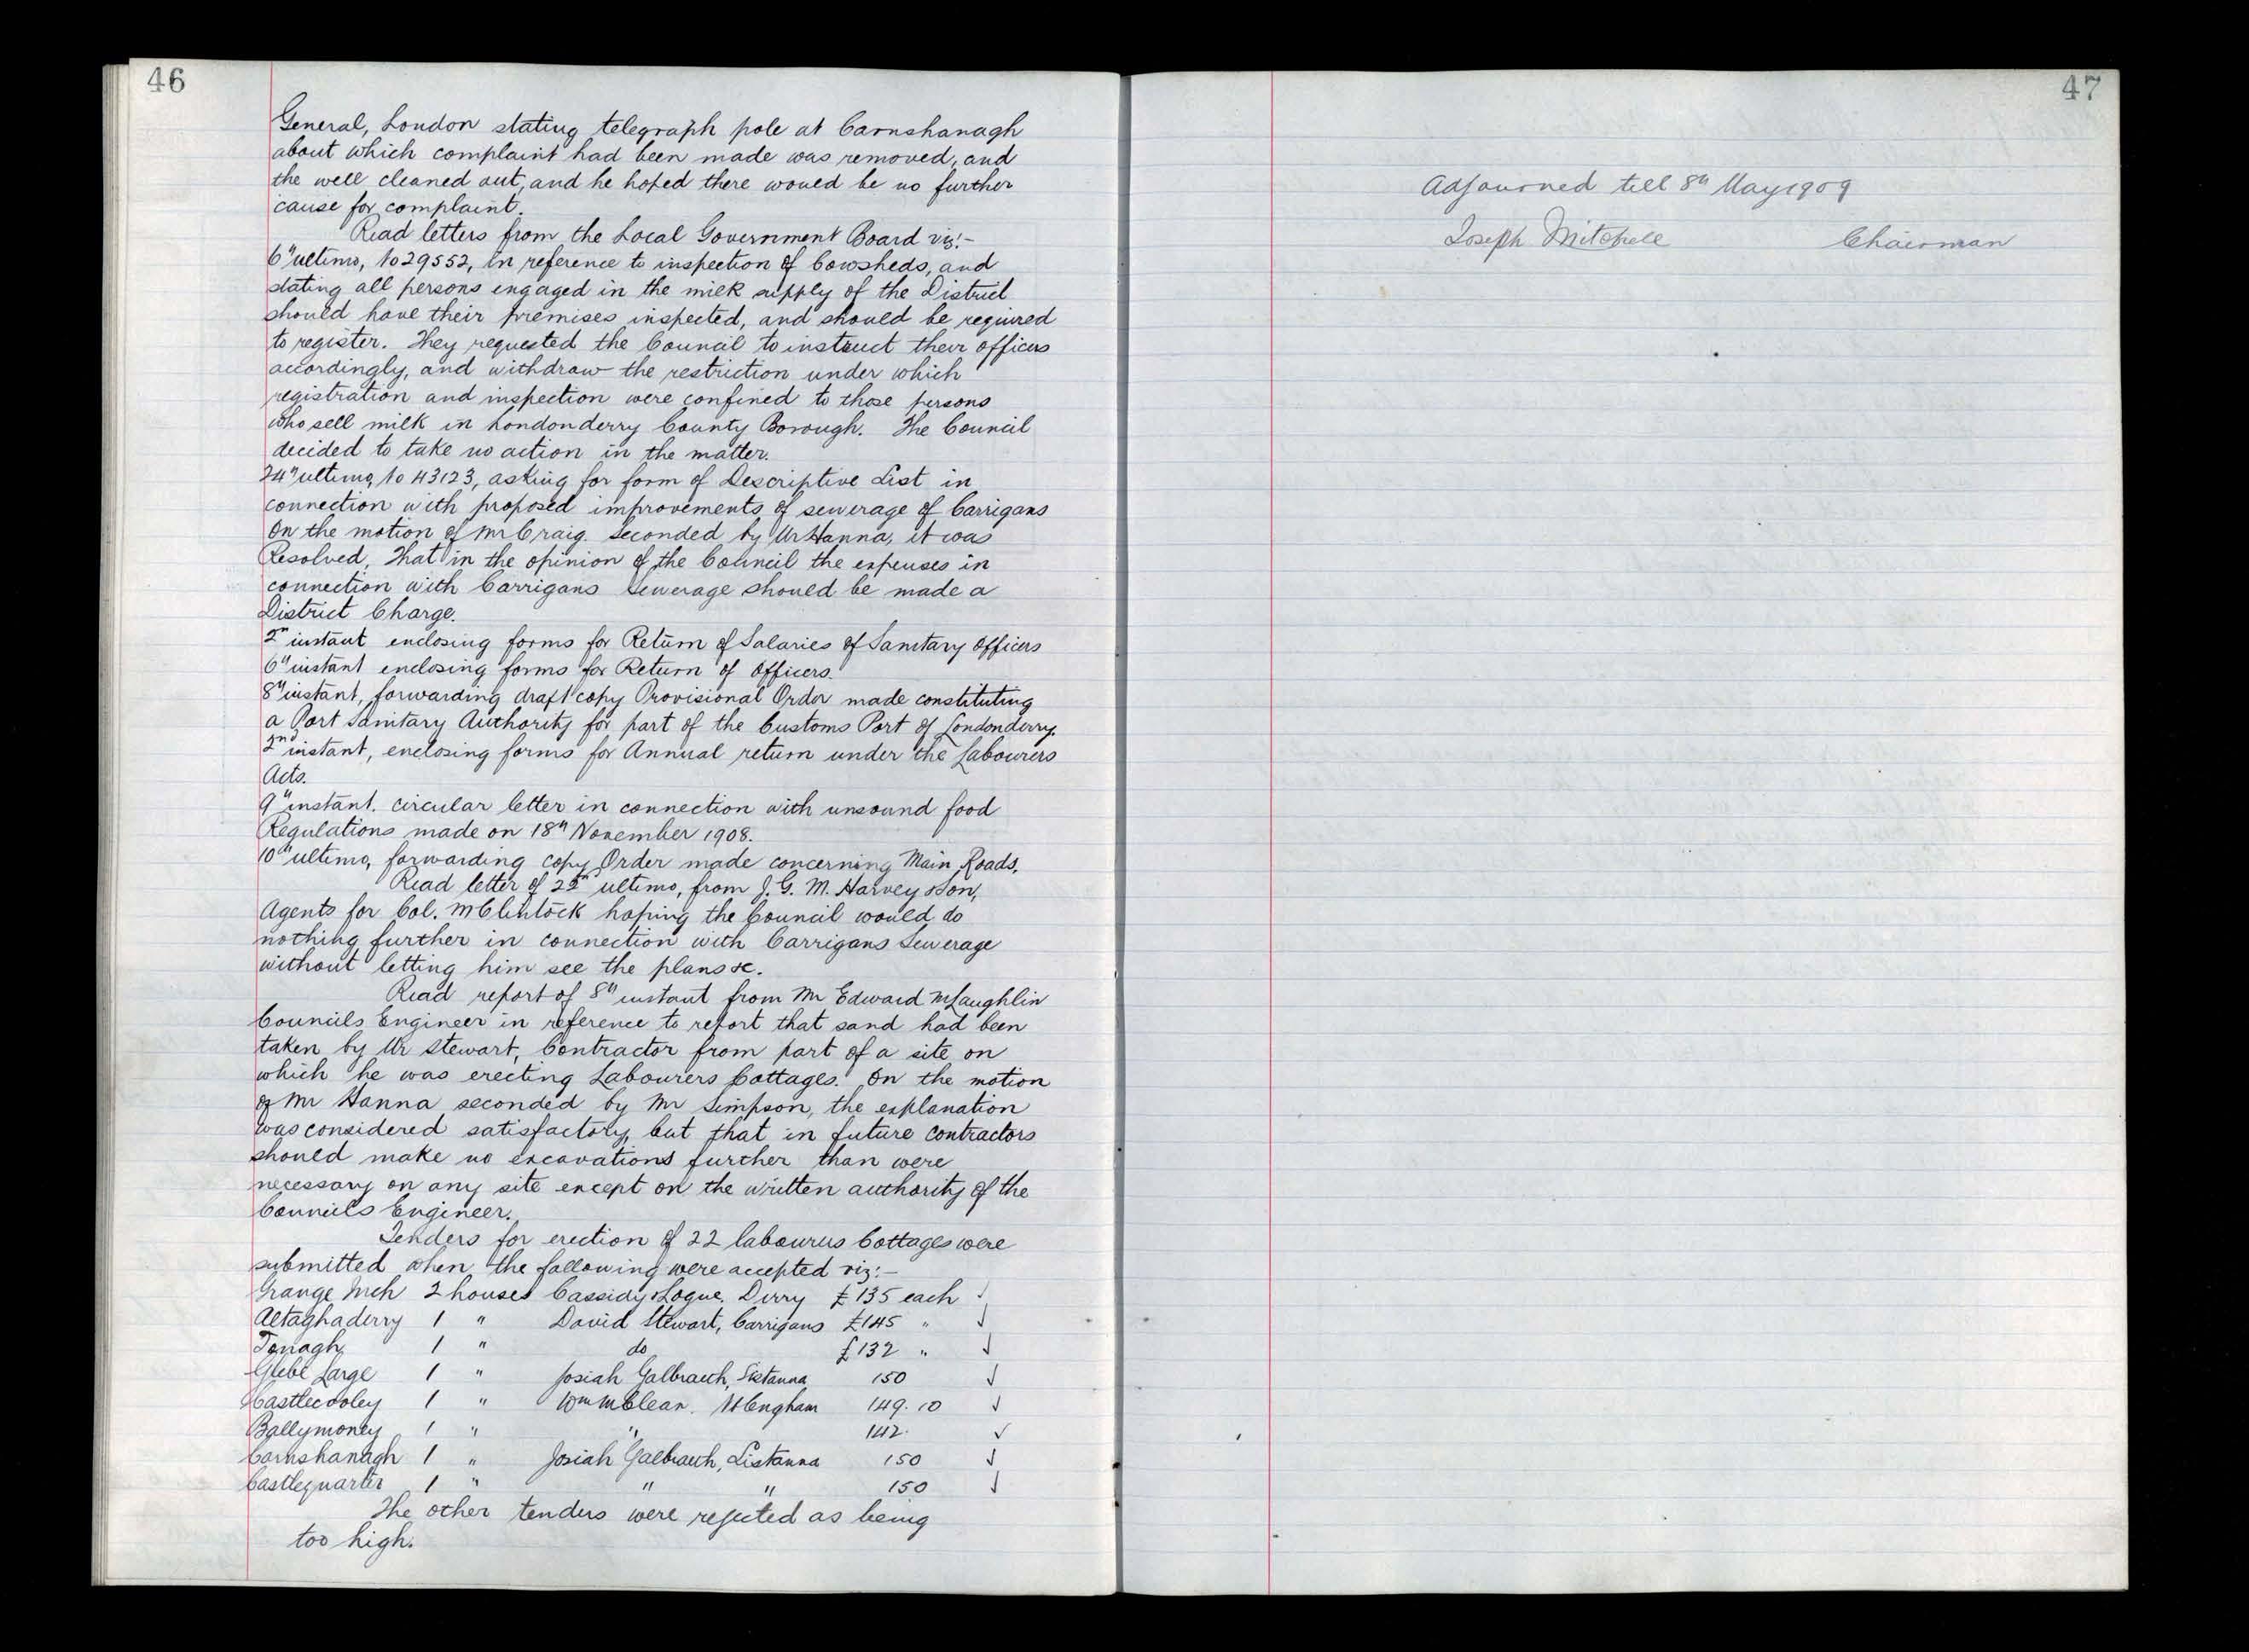 46
General, London stating telegraph pole at Carnshanagh
about which complaint had been made was removed, and
the well cleaned out, and he hoped there would be no further
cause for complaint.
Read letters from the Local Government Board viz:-
6th ultimo, No 29552, in reference to inspection of Cowsheds, and
stating all persons engaged in the milk supply of the District
should have their premises inspected, and should be required
to register. They requested the Council to instruct their officers
accordingly, and withdraw the restriction under which
registration and inspection were confined to those persons
who sell milk in Londonderry County Borough. The Council
decided to take no action in the matter.
24th ultimo, No 43123, asking for form of Descriptive List in
connection with proposed improvements of sewerage of Carrigans
On the motion of Mr Craig. Seconded by Mr Hanna, it was
Resolved, That in the opinion of the Council the expenses in
connection with Carrigans Sewerage should be made a
District Charge.
2nd instant enclosing forms for Return of Salaries of Sanitary Officers
6th instant enclosing forms for Return of Officers.
8th instant, forwarding draft copy Provisional Order made constituting
a Port Sanitary Authority for part of the Customs Port of Londonderry.
2nd instant, enclosing forms for Annual return under the Labourers
Acts.
9th instant. circular letter in connection with unsound food
Regulations made on 18th November 1908.
10th ultimo, forwarding copy Order made concerning Main Roads.
Read letter of 22nd ultimo, from J. G. M. Harvey & Son,
Agents for Col. McClintock hoping the Council would do
nothing further in connection with Carrigans Sewerage
without letting him see the plans &c.
Read report of 8th instant from Mr Edward McLaughlin
Councils Engineer in reference to report that sand had been
taken by Mr Stewart, Contractor from part of a site on
which he was erecting Labourers Cottages. On the motion
of Mr Hanna seconded by Mr Simpson, the explanation
was considered satisfactory, but that in future contractors
should make no excavations further than were
necessary on any site except on the written authority of the
Councils Engineer.
Tenders for erection of 22 labourers Cottages were
submitted when the following were accepted viz:-
Grange Inch 2 houses Cassidy & Logue. Derry £135 each ✓
Altaghaderry 1 " David Stewart, Carrigans £145 " ✓
Tonagh 1 " do £132 " ✓
Glebe Large 1 " Josiah Galbraith, Listanna 150 ✓
Castlecooley 1 " Wm McClean. 149.10 ✓
Ballymoney 1 " " 142. ✓
Carnshanagh 1 " Josiah Galbraith, Listanna 150 ✓
Castlequarter 1 " " " 150 ✓
The other tenders were rejected as being
too high.
47
Adjourned till 8th May 1909
Joseph Mitchell Chairman